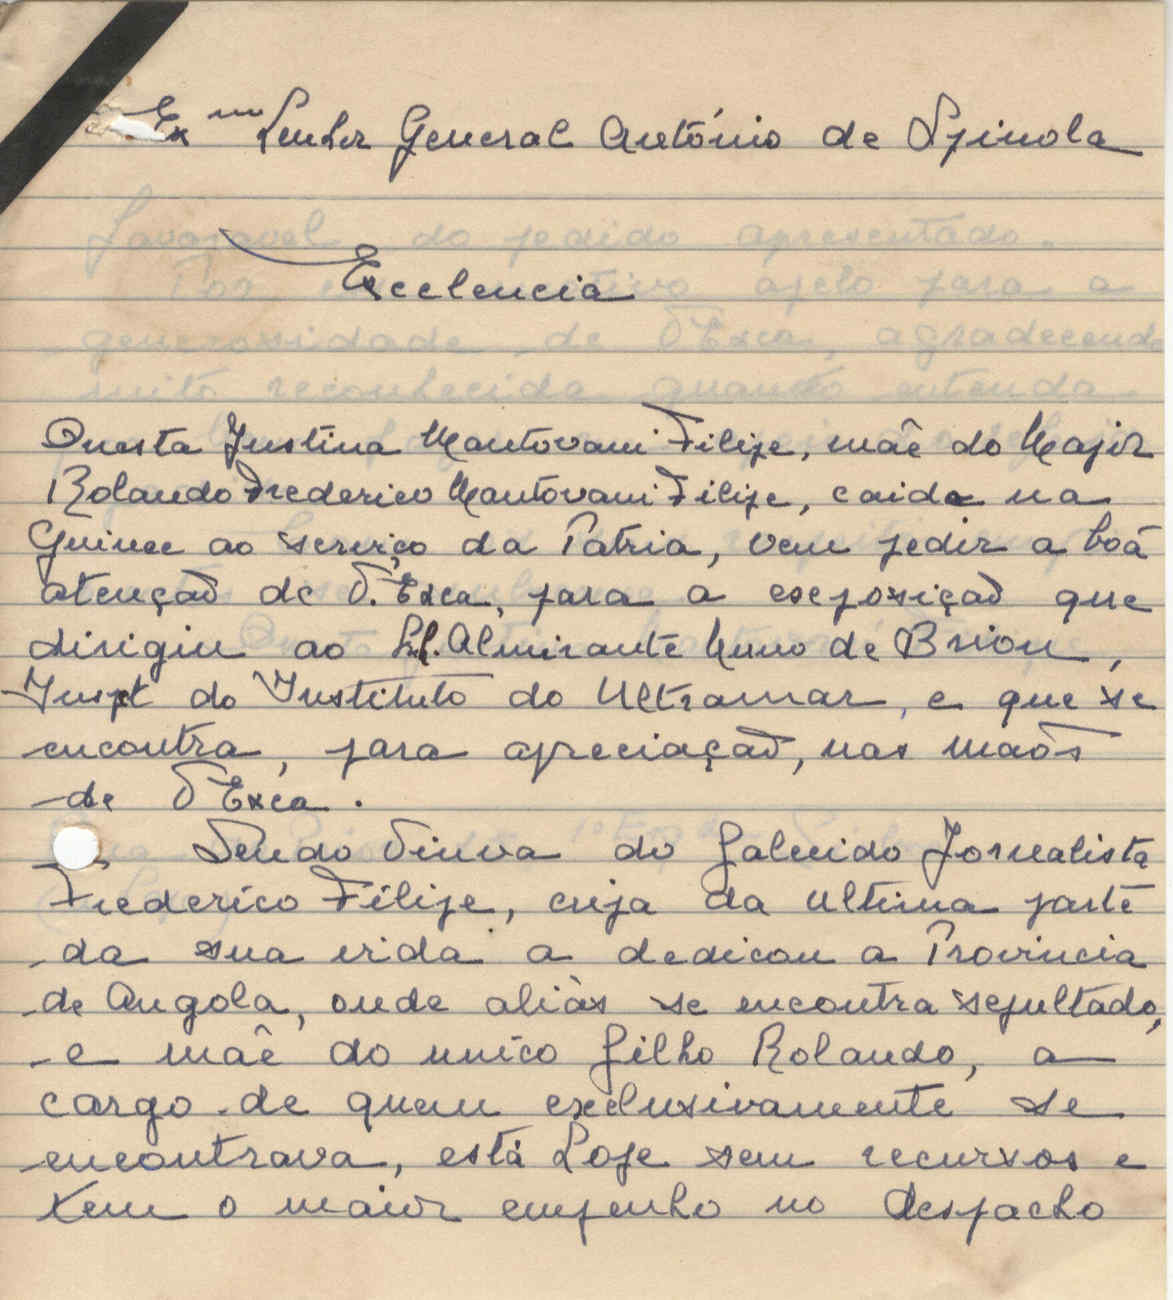 Exmo Senhor General António de Spinola
Excelencia
Onesta Justina Mantovani Filipe, mãe do Major
Rolando Frederico Mantovani Filipe, caido na
Guinee ao serviço da Patria, vem pedir a boã
atenção de V. Exca, para a exposição que
dirigiu ao Sr. Almirante Nuno de Brion,
Inspt do Instituto do Ultramar, e que se
encontra, para apreciação, nas maõs
de V Exca.
Sendo Viuva do falecido Jornalista
Frederico Filipe, cuja da ultima parte
da sua vida a dedicou a Provincia
de Angola, onde aliàs se encontra sepultado,
e mãe do unico filho Rolando, a
cargo de quem exclusivamente se
encontrava, está hoje sem recursos e
tem o maior empenho no despacho